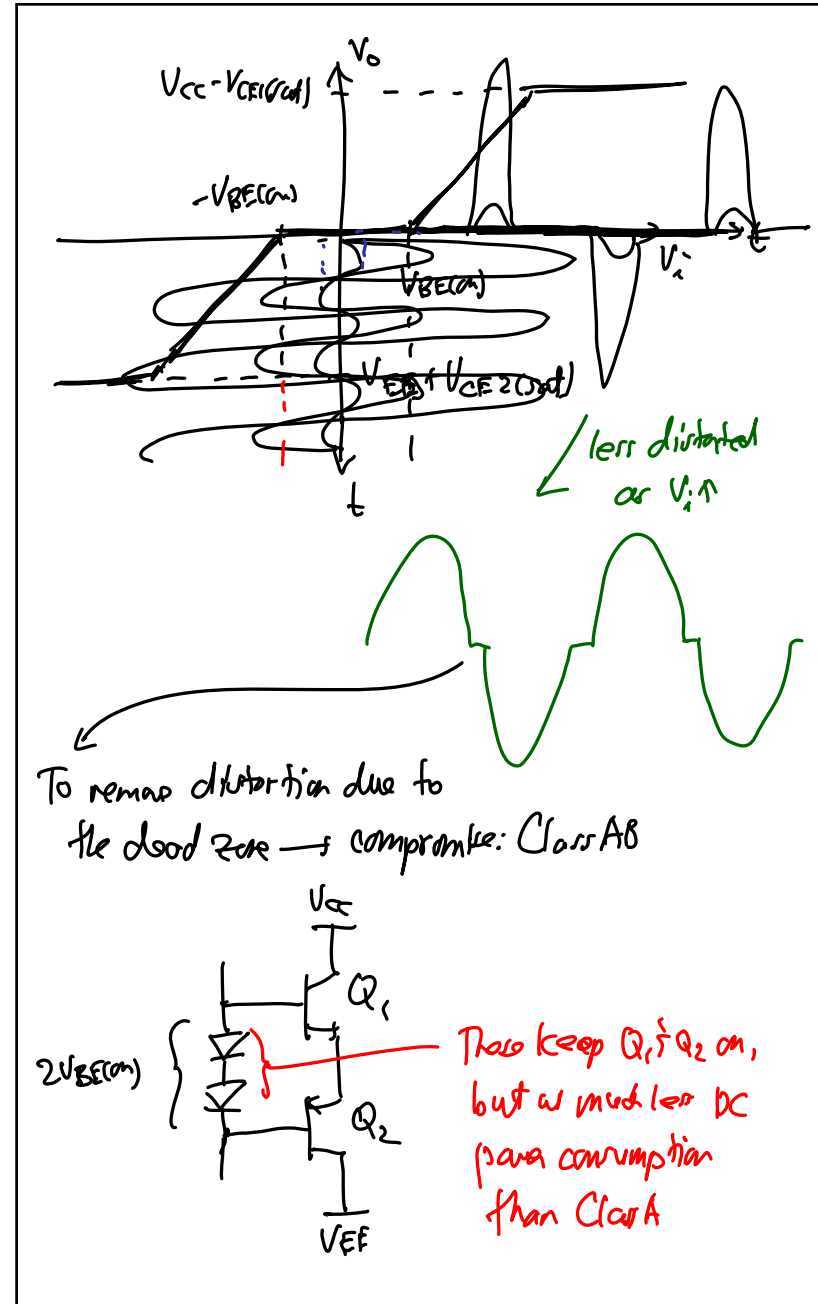 V₀
V_CC - V_CE1(sat)
-V_BE(on)
t
V_i
V_BE(on)
V_EE + V_CE2(sat)
t
less distorted
as V_i ↑
To remove distortion due to
the dead zone → compromise: Class AB
V_CC
Q₁
2V_BE(on)
Q₂
V_EE
These keep Q₁ & Q₂ on,
but w much less DC
power consumption
than Class A